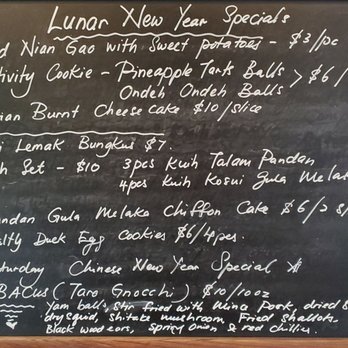 Lunar New Year Specials
d Nian Gao with Sweet potatoes - $3/pc
tivity Cookie - Pineapple Tarts Balls > $6/
Ondeh Ondeh Balls
ian Burnt Cheese Cake $10/slice
i Lemak Bungkus $7.
h Set - $10 3pcs Kuih Talam Pandan
4pcs Kuih Kosui Gula Melak
ndan Gula Melaka Chiffon Cake $6/2 s
lty Duck Egg Cookies $6/4pcs.
turday Chinese New Year Special
BACUS (Taro Gnocchi) $10/10oz
Yam balls, stir fried with Mince Pork, dried s
dry squid, shitake mushroom Fried shallots
Black wood ears, Spring Onion & red chillies.